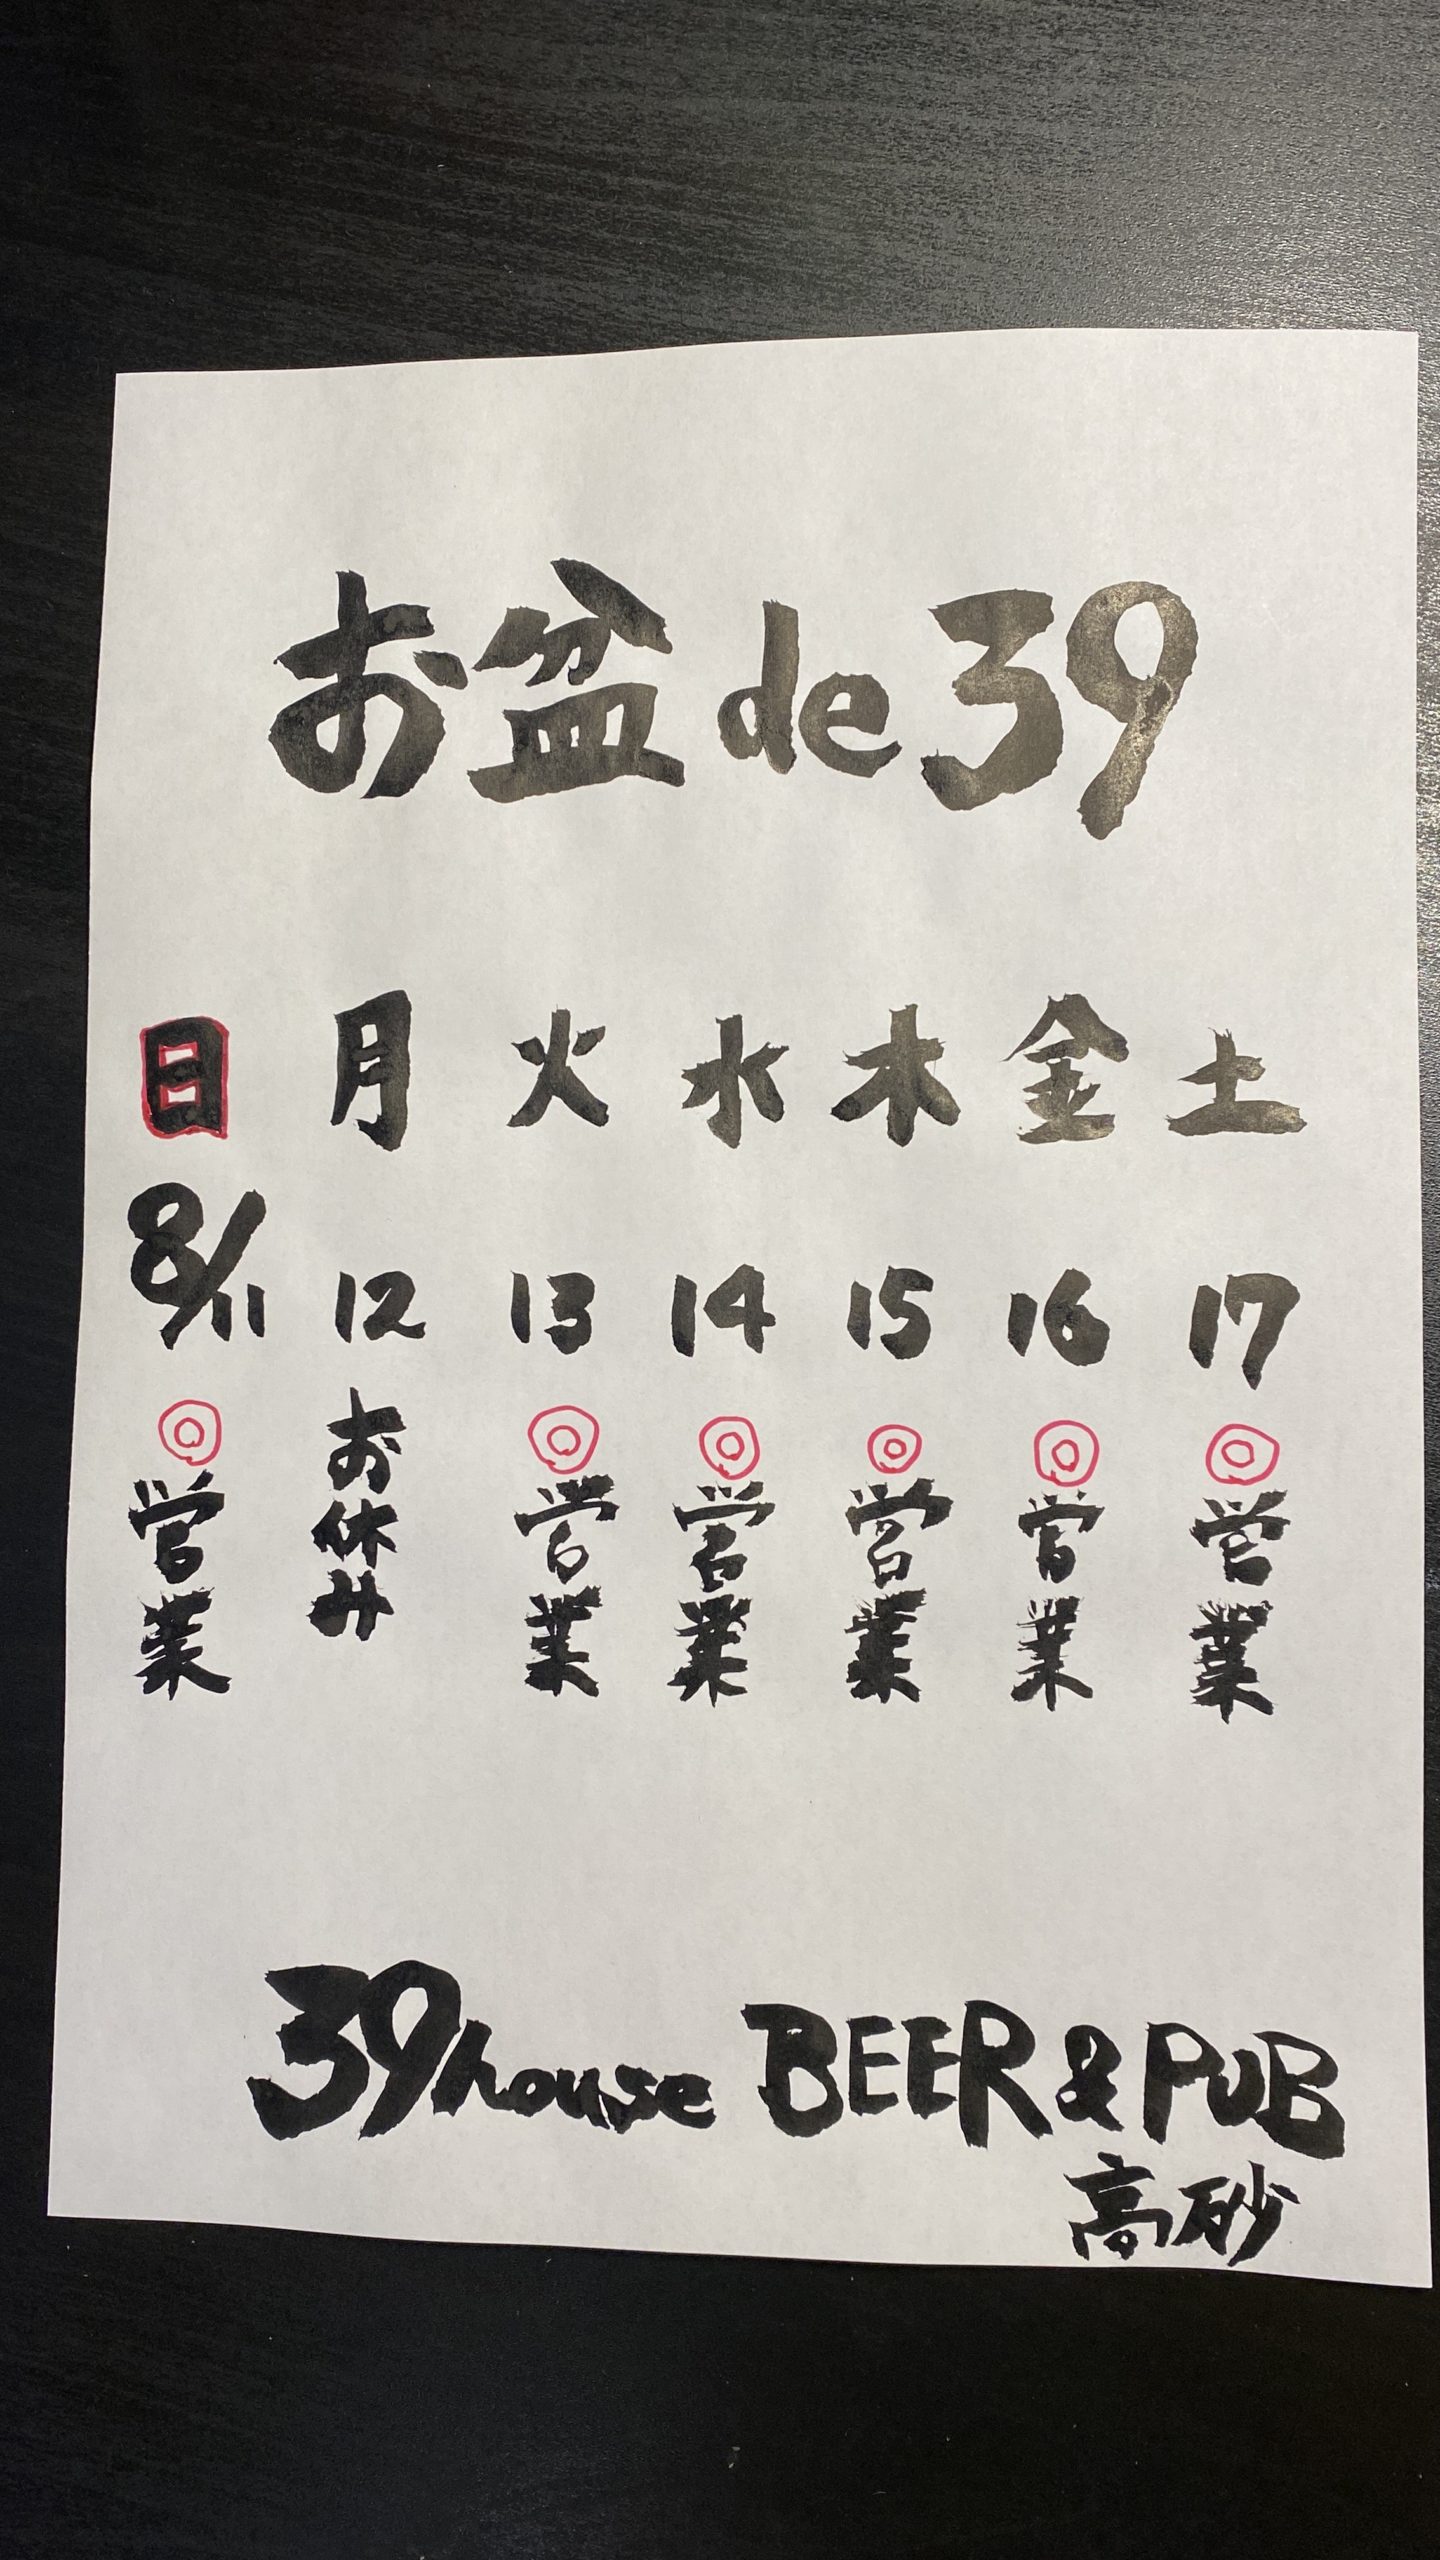 お盆 de 39
日 月 火 水 木 金 土
8/11 12 13 14 15 16 17
◎ ◎ ◎ ◎ ◎ ◎
営業 お休み 営業 営業 営業 営業 営業
39house BEER & PUB
高砂